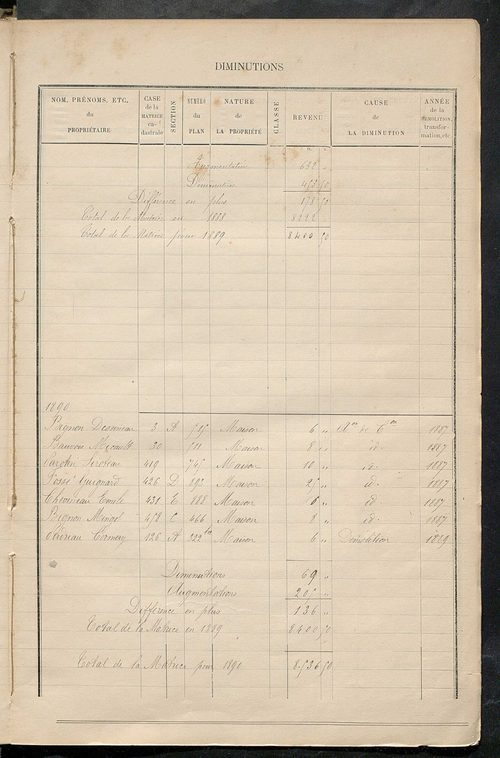 DIMINUTIONS
NOM, PRÉNOMS, ETC. du PROPRIÉTAIRE CASE de la MATRICE ca- dastrale SECTION NUMÉRO du PLAN NATURE de LA PROPRIÉTÉ CLASSE REVENU CAUSE de LA DIMINUTION ANNÉE de la DÉMOLITION, transfor- mation, etc.
Augmentation 632 "
Diminution 453 50
Différence en plus 178 50
Total de la Matrice en 1888 8222
Total de la Matrice pour 1889 8400 50
1890
3 A Maison 6 " 1887
30 Maison 8 " id 1887
419 Maison 10 " id 1887
Guignard 426 D Maison id 1887
Emile 431 E 888 Maison 6 " id 1887
Mingot 478 E 466 Maison 8 " id 1887
126 A 232 bis Maison 6 " Démolition 1889
Diminutions 69 "
Augmentations 205 "
Différence en plus 136 "
Total de la Matrice en 1889 8400 50
Total de la Matrice pour 1890 8536 50